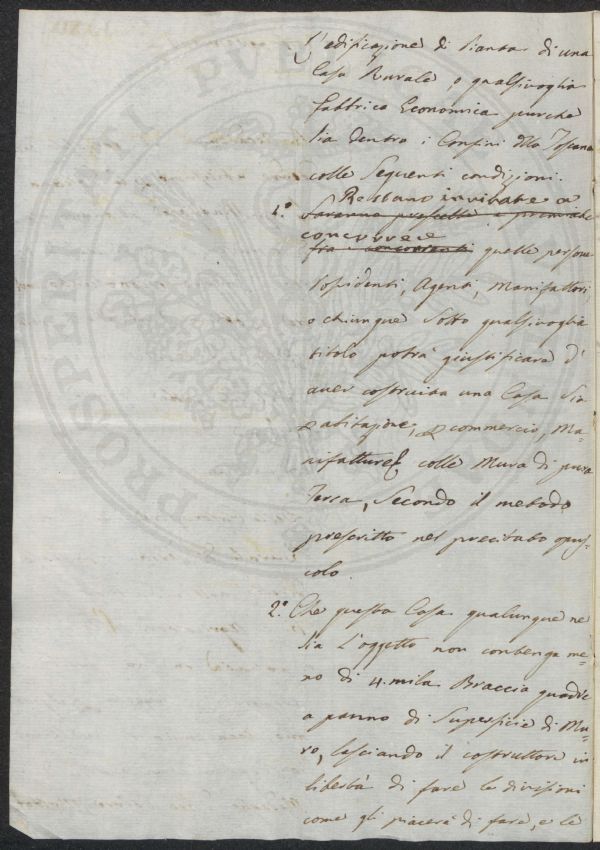 L'edificazione di pianta di una
Casa Rurale, o qualsivoglia
fabbrica Economica purche
sia dentro i Confini della Toscana
colle Seguenti condizioni.
Restano invitate a
1.° Saranno prescelte e premiate
concorrere
fra i concorrenti quelle persone
Possidenti, Agenti, Manifattori
o chiunque Sotto qualsivoglia
titolo potrà giustificare d'
aver costruita una Casa Sia
p abitazione, p commercio, Ma-
nifatture colle Mura di pura
Terra, Secondo il metodo
prescritto nel precitato opus-
colo.
2.° Che questa Casa qualunque ne
sia l'oggetto non contenga me-
no di 4. mila Braccia quadre
a panno di Superficie di Mu-
ro, lasciando il costruttore in
libertà di fare le divisioni
come gli piacerà di fare, e le
PROSPERITATI PVBLICAE